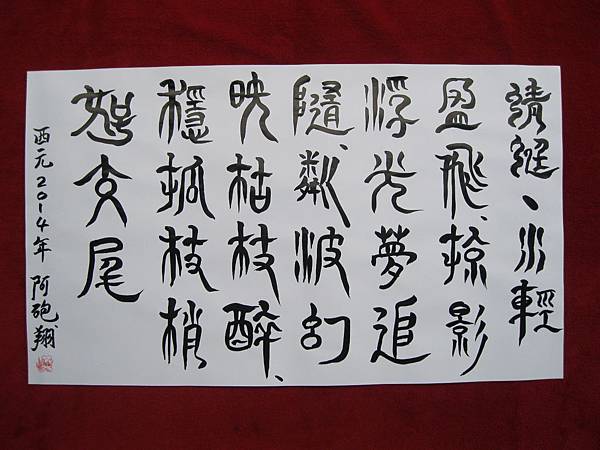 蜻蜓丶水輕
盈飛、掠影
浮光夢追
隨、粼波幻
映枯枝醉、
穩抓枝梢
玄尾
西元2014年 阿砲翔